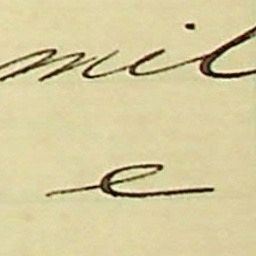 mil
e